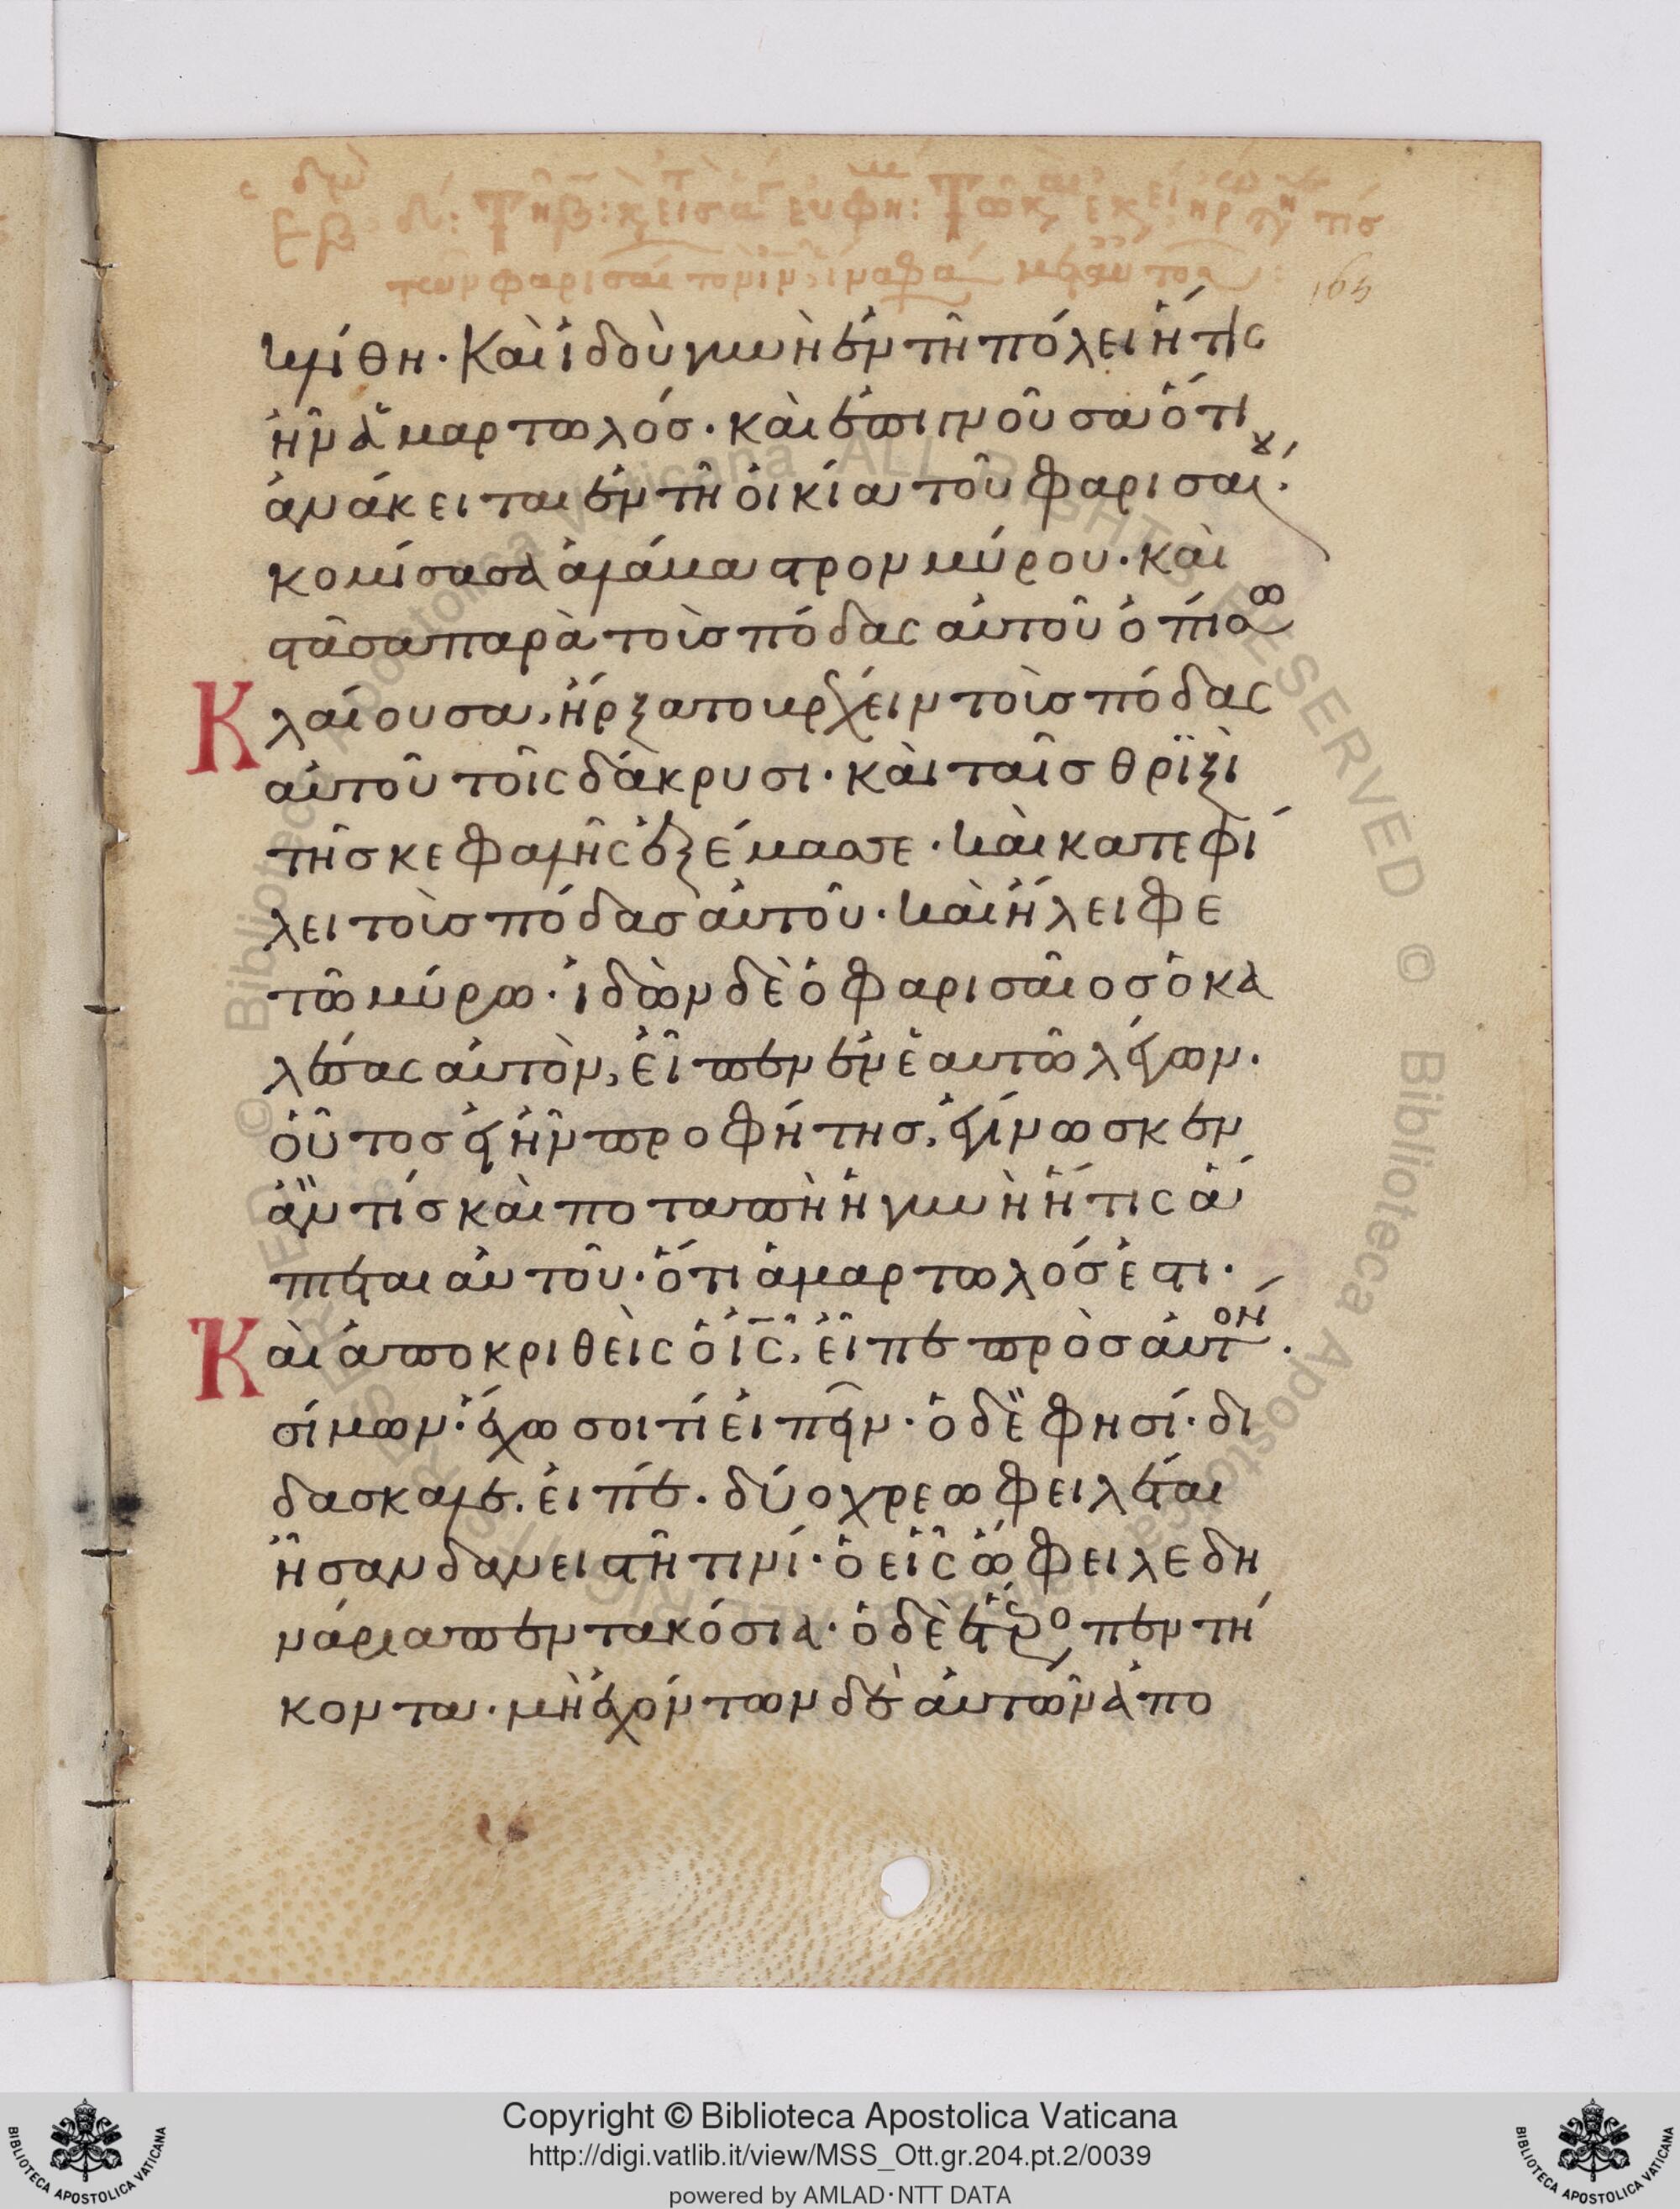 κλίθη. Καὶ ἰδοὺ γυνὴ ἐν τῇ πόλει ἥτις
ἦν ἁμαρτωλός. καὶ ἐπιγνοῦσα ὅτι
ἀνάκειται ἐν τῇ οἰκία τοῦ φαρισαίου.
κομίσασα ἀλάβαστρον μύρου. καὶ
στᾶσα παρὰ τοὺς πόδας αὐτοῦ ὀπίσω
Κλαίουσα, ἤρξατο βρέχειν τοὺς πόδας
αὐτοῦ τοῖς δάκρυσι. καὶ ταῖς θριξὶ
τῆς κεφαλῆς ἐξέμασσε. καὶ κατεφί
λει τοὺς πόδας αὐτοῦ. καὶ ἤλειφε
τῶ μύρω. ἰδὼν δὲ ὁ φαρισαῖος ὁ κα
λέσας αὐτὸν, εἶπεν ἐν ἑαυτῶ λέγων.
οὗτος εἰ ἦν προφήτης, ἐγίνωσκεν
ἂν τίς καὶ ποταπὴ ἡ γυνὴ ἥτις ἅ
πτεται αὐτοῦ. ὅτι ἁμαρτωλός ἐστι.
Καὶ ἀποκριθεὶς ὁ ι̅ς̅, εἶπε πρὸς αὐτόν.
σίμων. ἔχω σοι τί εἰπεῖν. ὁ δὲ φησί. δι
δάσκαλε. εἰπέ. δύο χρεωφειλέται
ἦσαν δανειστῆ τινί. ὁ εἷς ὤφειλε δη
νάρια πεντακόσια. ὁ δὲ ἕτερος πεντή
κοντα. μὴ ἐχόντων δὲ αὐτῶν ἀπο
Copyright © Biblioteca Apostolica Vaticana
http://digi.vatlib.it/view/MSS_Ott.gr.204.pt.2/0039
powered by AMLAD·NTT DATA